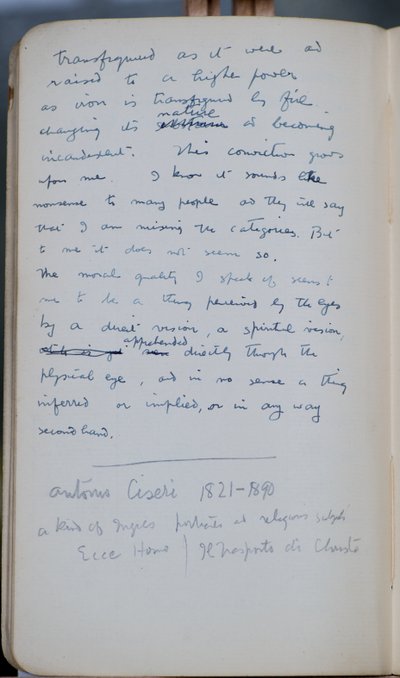 transfigured as it were and
raised to a higher power
as iron is transfigured by fire
nature
changing its and becoming
incandescent. This conviction grows
upon me. I know it sounds like
nonsense to many people and they will say
that I am mixing the categories. But
to me it does not seem so.
The moral quality I speak of seems to
me to be a thing perceived by the eyes
by a direct vision, a spiritual vision,
apprehended
directly through the
physical eye, and in no sense a thing
inferred or implied, or in any way
second hand.
Antonio Ciseri 1821-1890
a kind of Ingres portraits and religious subjects
Ecce Homo / Il Trasporto di Christo